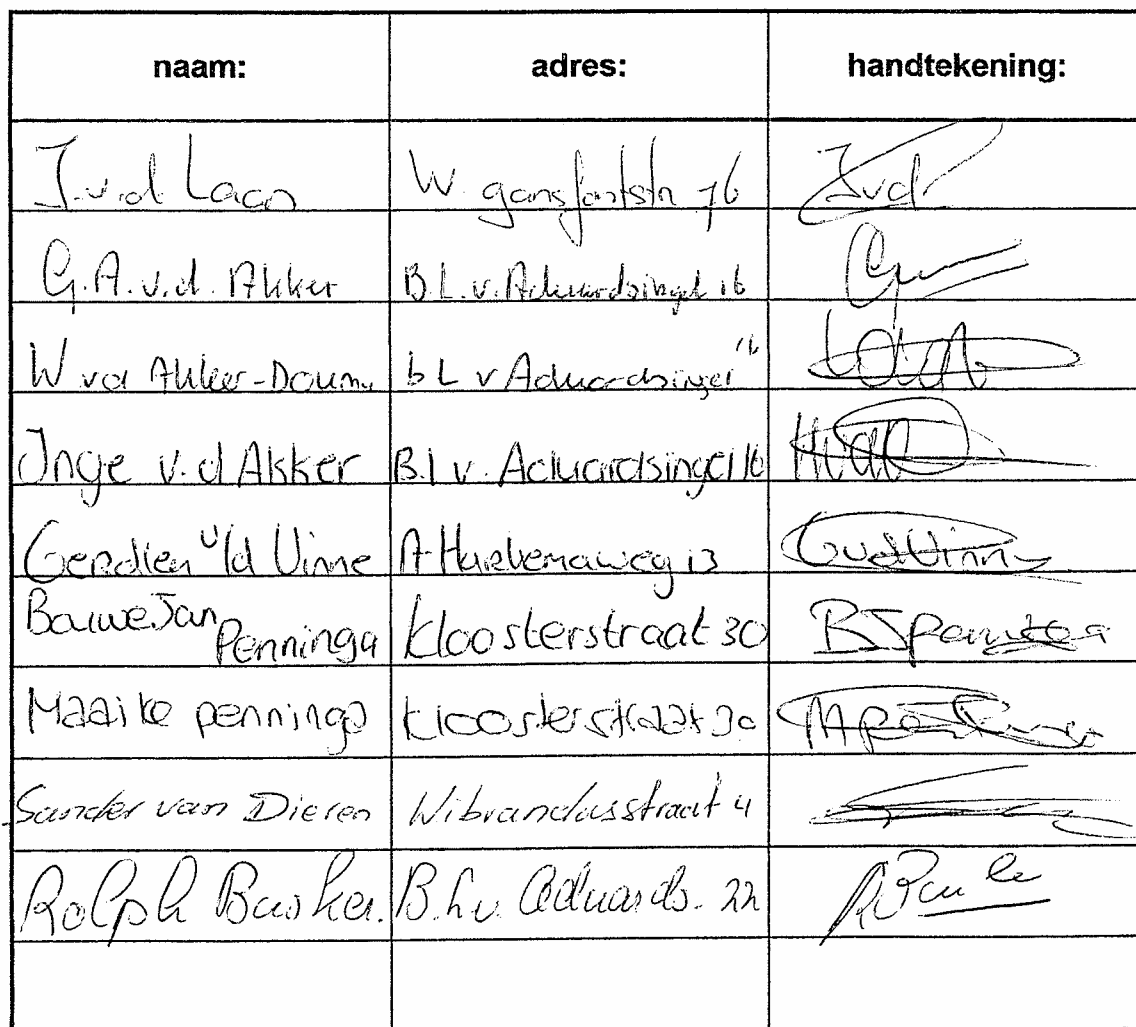 naam: adres: handtekening:
J.v.d. Laan W. gansfortstr 76 Jvd
G.A.v.d. Akker B.L.v. Aduardsingel 16
W vd Akker-Douma b L v Aduardsingel 16
Inge v.d Akker B.l v. Aduardsingel 16 HvdA
Gerdien v/d Vinne A Harkemaweg 13 GvdVinne
Bauwe Jan Penninga Kloosterstraat 30 BJPenninga
Maaike penninga kloosterstraat 30 MPenninga
Sander van Dieren Wibrandusstraat 4
Rolph Busker. B.L.v. Aduards. 22